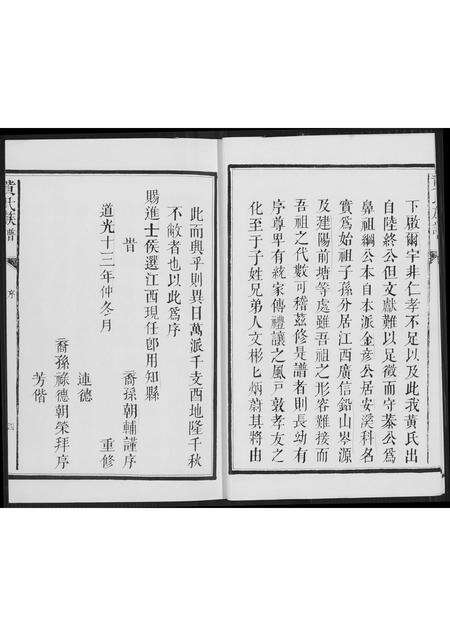 下啟爾宇非仁孝不足以及此我黃氏出
自陸終公但文獻難以足徵而守泰公爲
鼻祖綱公本自本派金彥公居安溪科名
實爲始祖子孫分居江西廣信鉛山岑源
及建陽前塘等處雖吾祖之形容難接而
吾祖之代數可稽茲修是譜者則長幼有
序尊卑有統家傳禮讓之風戸敦孝友之
化至于子姓兄弟人文彬匕炳蔚其將由
此而興乎則異日萬派千支酉地隆千秋
不敝者也以此爲序
賜進士侯選江西現任卽用知縣
旹
道光十三年仲冬月
裔孫朝輔謹序
重修
連德
裔孫祿德朝榮拜序
芳偕
黃氏族譜
序